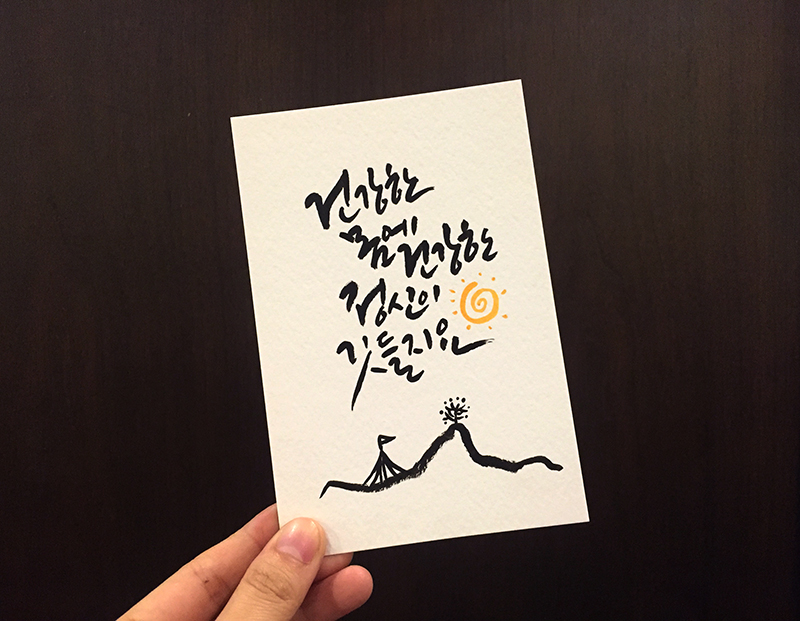 건강한
몸에 건강한
정신이
깃들지요